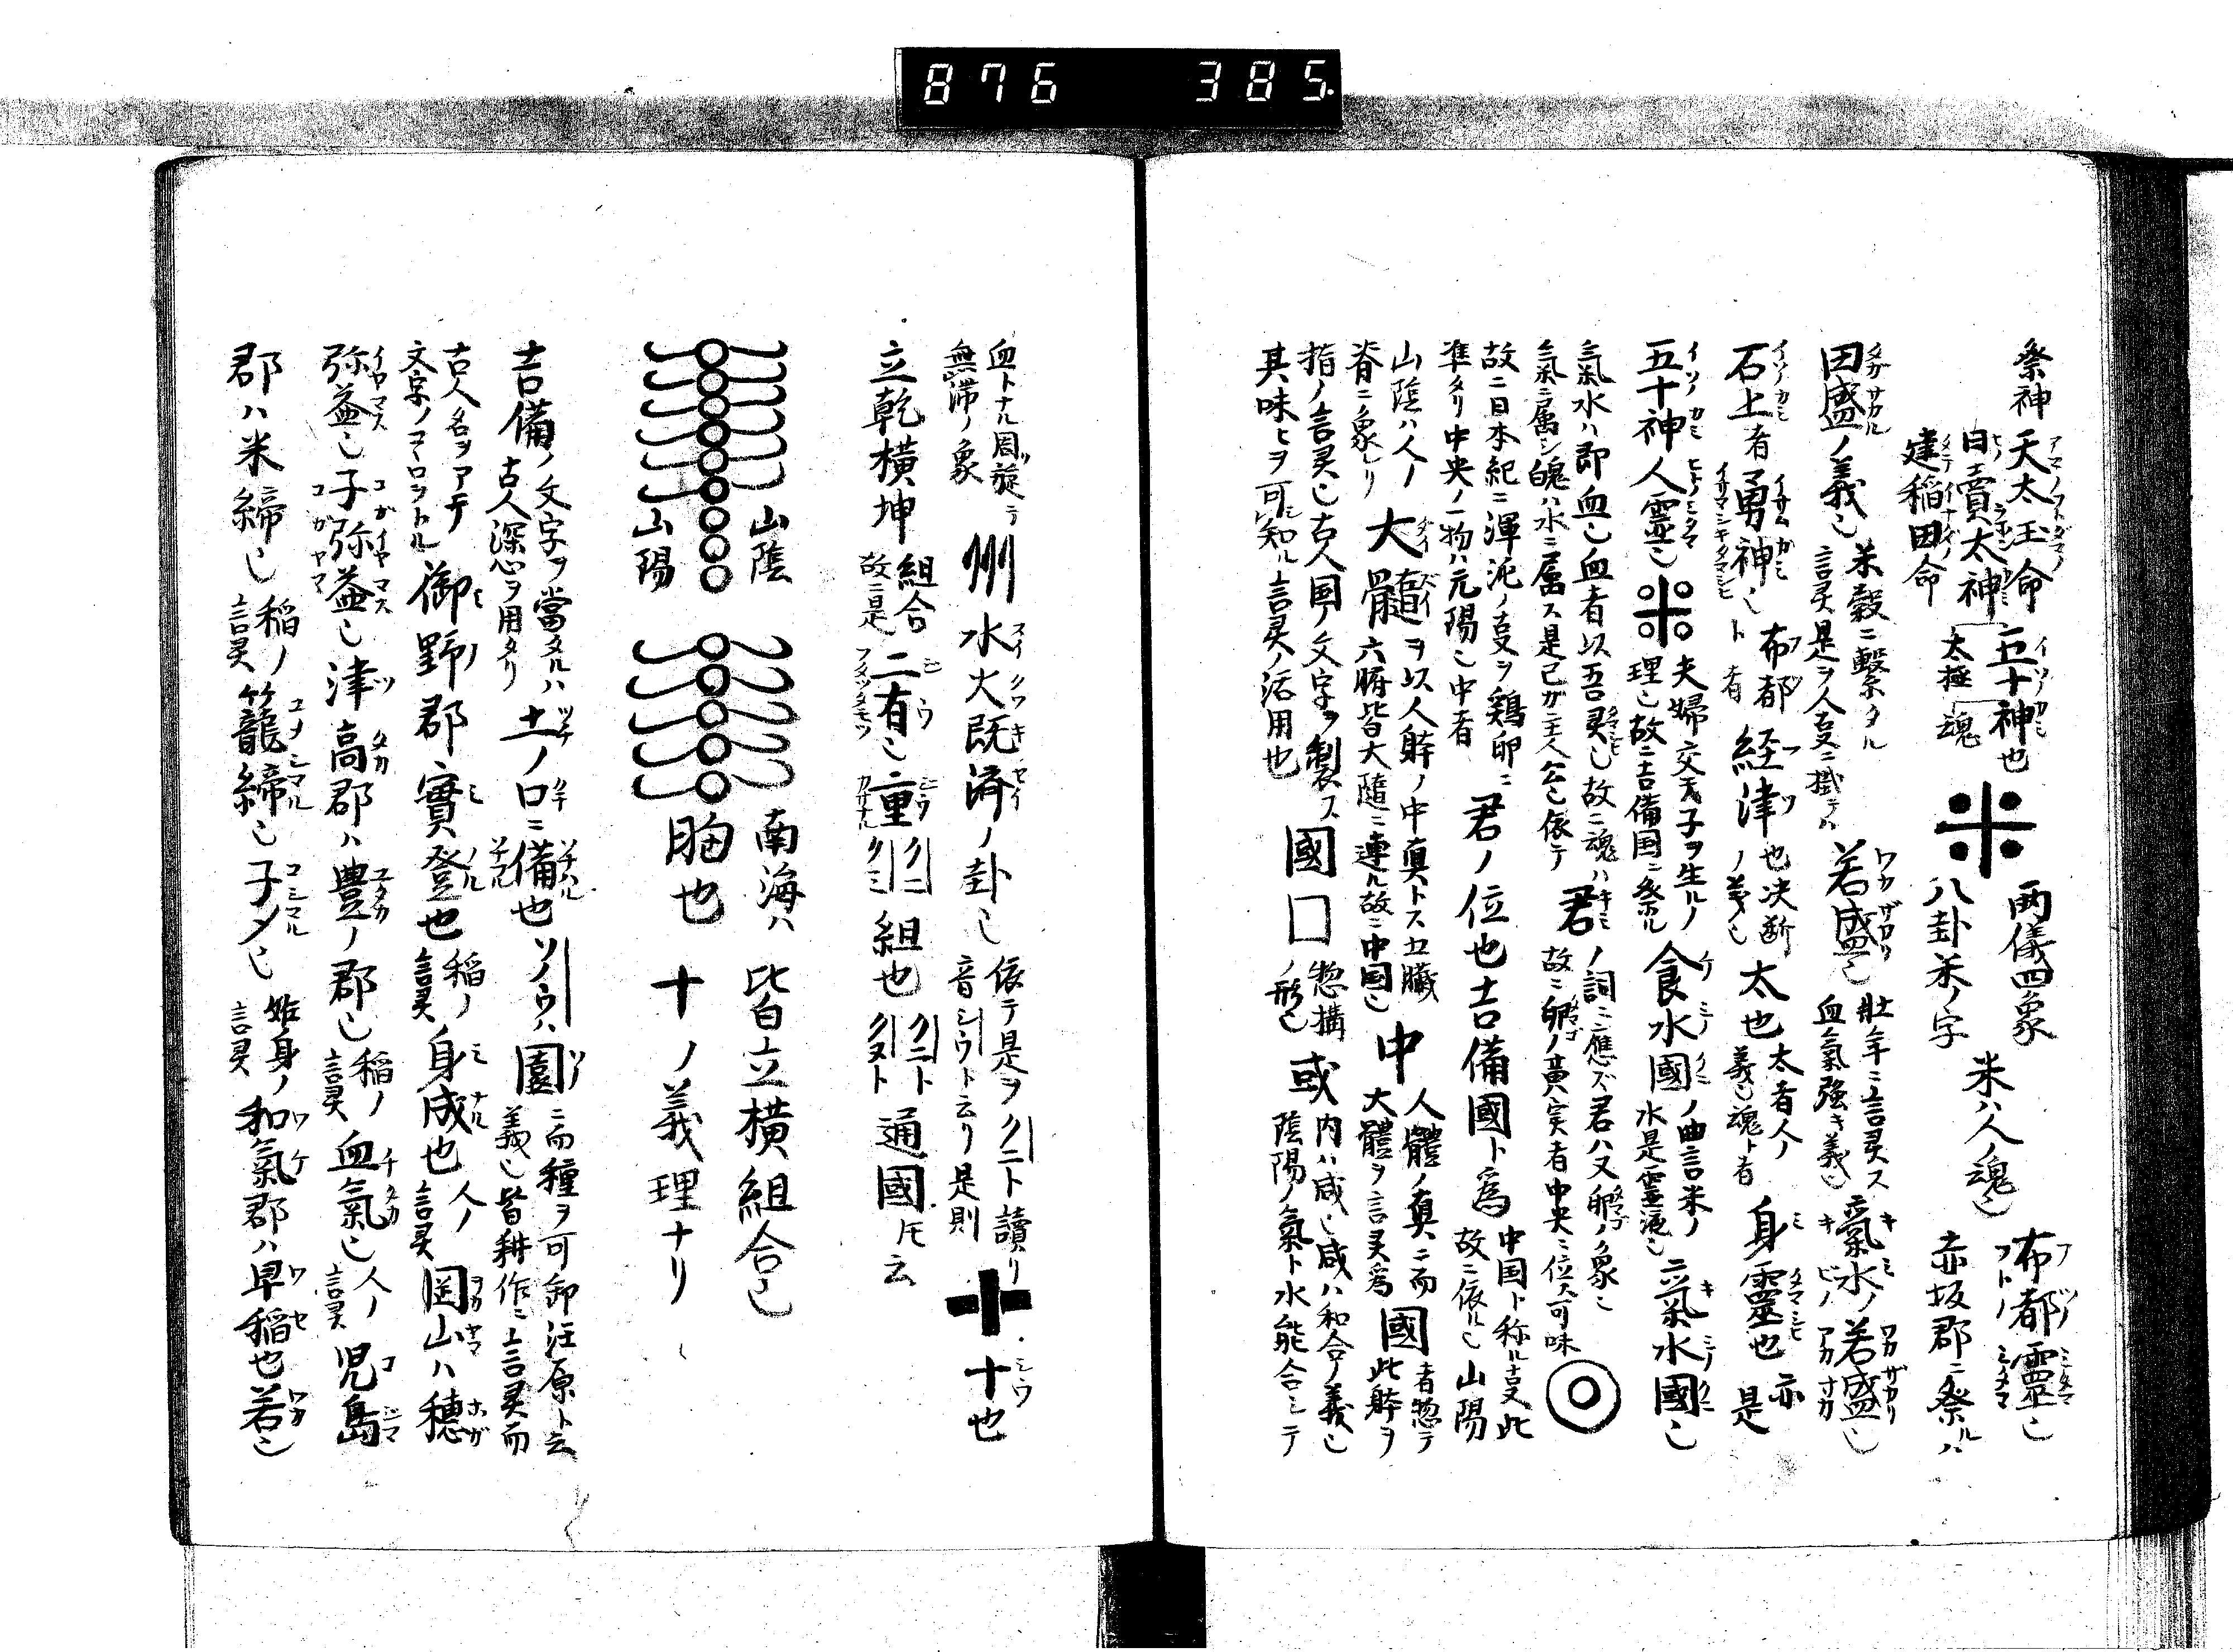 876 385.
祭神 天太玉命
日賣太神
建稲田命
五十神也
太極 魂
両儀四象
八卦米ノ字
米ハ人ノ魂也
布都霊也
赤坂郡ニ祭ルハ
田盛ノ義也
米穀ニ繋タル
言灵是ヲ人叓ニ掛テハ
若盛也
壮年ニ言灵ス
血氣強キ義也
氣水ノ若盛也
石上者勇神也
布都
ト者
経津
也决断
ノ義也
太也
太者人ノ
義也魂ト者
身霊也亦是
五十神人霊也
夫婦交テ子ヲ生ルノ
理也故ニ吉備国ニ祭ル
食水國
ノ曲言米ノ
水是霊液也
氣水國也
氣水ハ即血也血者以吾灵也故ニ魂ハ
氣ニ属シ魄ハ水ニ属ス是己ガ主人公也依テ
君
ノ詞ニ應ズ君ハ又卵ノ象也
故ニ卵ノ黄実者中央ニ位ス可味
故ニ日本紀ニ渾沌ノ叓ヲ鶏卵ニ
準タリ中央ノ一物ハ元陽也中者
君ノ位也吉備國ト為
中国ト称ル叓此
故ニ依ル也山陽
山陰ハ人ノ
脊ニ象レリ
大髄
ヲ以人躰ノ中真トス五臓
六腑皆大隨ニ連ル故ニ中国也
中
人體ノ真ニ而
大體ヲ言灵為
國
者惣テ
此躰ヲ
指ノ言灵也古人国ノ文字ヲ製ス
其味ヒヲ可知ル言灵ノ活用也
國 囗
惣構
ノ形也
或
内ハ咸也咸ハ和合ノ義也
陰陽ノ氣ト水能合シテ
血トナル周旋テ
無滞ノ象
州 水火既済ノ卦也
依テ是ヲクニト讀リ
音シウト云リ是則
十 十也
立乾横坤
組合
故ニ是
二有也二重
クニ
クミ
組也
クニト
クヌト
通國
圧云
山陰
山陽
南海ハ
胸也
皆立横組合也
十ノ義理ナリ
吉備
ノ文字ヲ當タルハ
古人深心ヲ用タリ
土ノ口ニ備也
ソノウハ園
ニ而種ヲ可卸汪原ト云
義也皆耕作ニ言灵而
古人名ヲアテ
文字ノコヽロヲトル
御野郡實登也
稲ノ
言灵
身成也
人ノ
言灵
岡山ハ穂
弥益也子弥益也津高郡ハ豊ノ郡也
稲ノ
言灵
血氣也
人ノ
言灵
児島
郡ハ米締也
稲ノ
言灵
籠締也子〆也
姙身ノ
言灵
和氣郡ハ早稲也若也